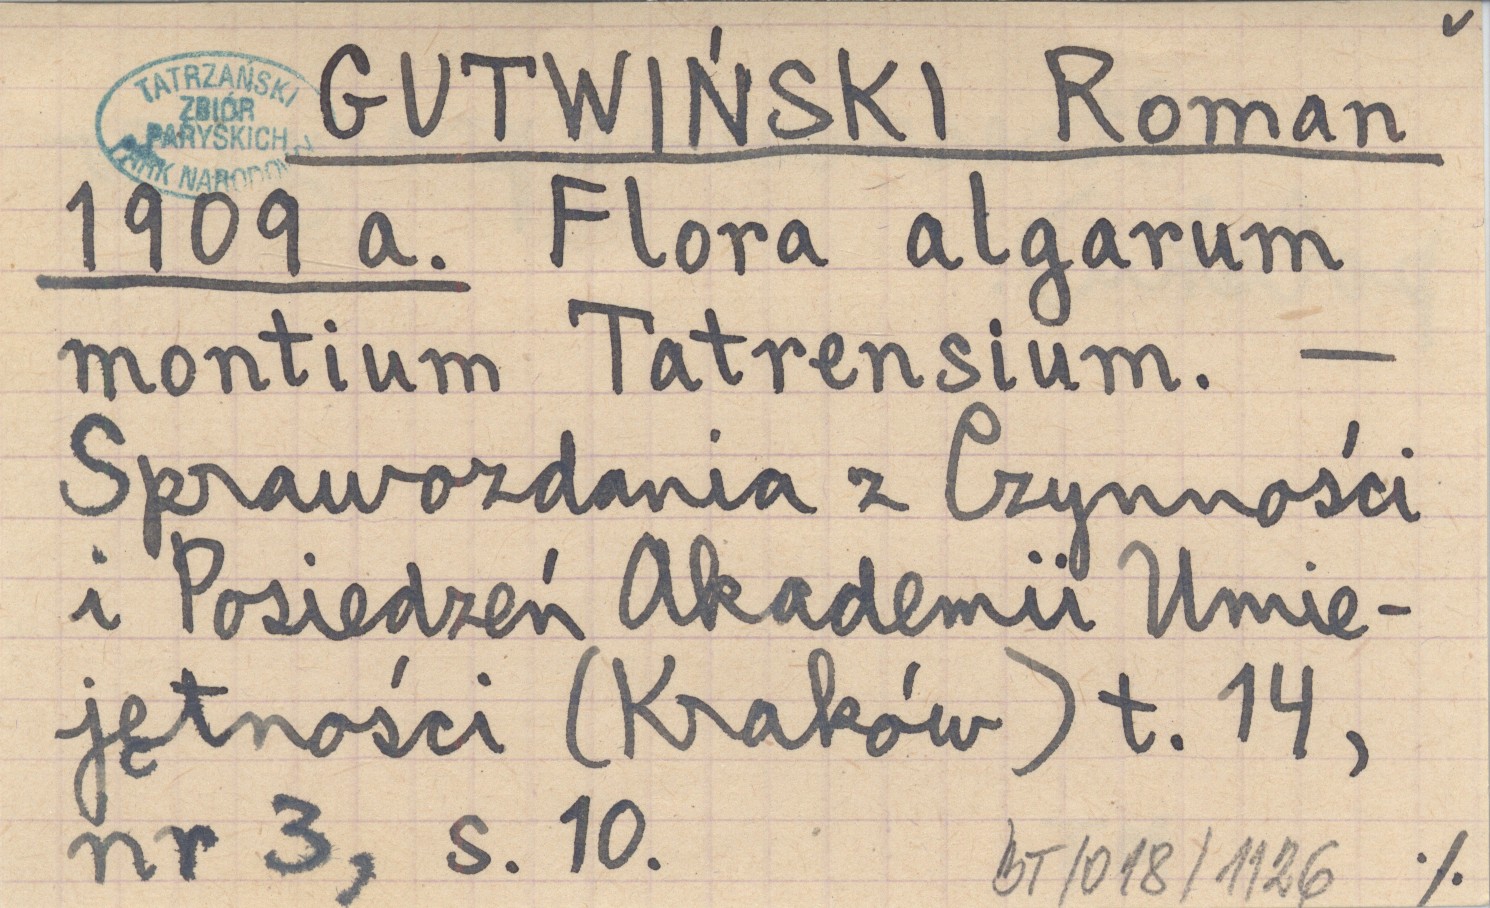 ✓
TATRZAŃSKI
ZBIÓR
PARYSKICH
PARK NARODOWY
GUTWIŃSKI Roman
1909 a. Flora algarum
montium Tatrensium. —
Sprawozdania z Czynności
i Posiedzeń Akademii Umie-
jętności (Kraków) t. 14,
nr 3, s. 10.
BT/018/1126 ·/.